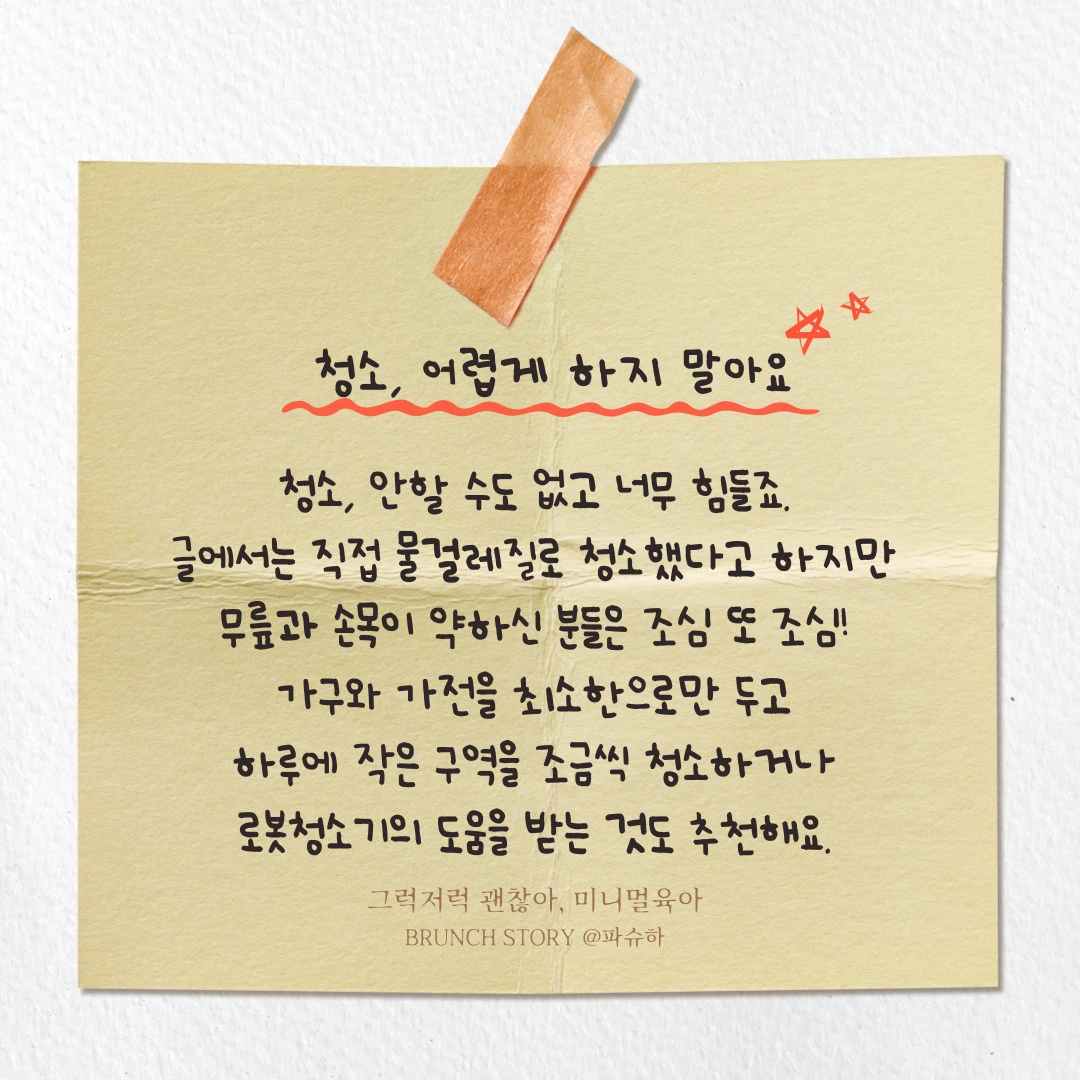 청소, 어렵게 하지 말아요
청소, 안할 수도 없고 너무 힘들죠.
글에서는 직접 물걸레질로 청소했다고 하지만
무릎과 손목이 약하신 분들은 조심 또 조심!!
가구와 가전을 최소한으로만 두고
하루에 작은 구역을 조금씩 청소하거나
로봇청소기의 도움을 받는 것도 추천해요.
그럭저럭 괜찮아, 미니멀육아
BRUNCH STORY @파슈하